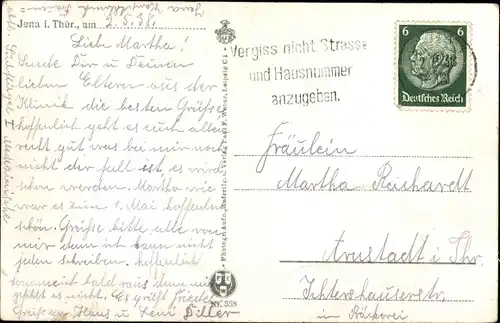 Jena i. Thür., am 2.5.38.
Liebe Martha!
Sende Dir u Deinen
lieben Eltern aus der
Klinik die besten Grüße
hoffentlich geht es euch allen
recht gut was bei mir noch
nicht der fall ist, es wird
schon werden. Martha wie
war es zum 1. Mai hoffentlich
schön. Grüße bitte alle von
mir denn ich kann nicht
jeden schreiben. hoffentlich
komme ich bald raus denn mir
gefällt es nicht. Es grüßt Frieda
Grüße an Hans u Leni Diller
Nr. 538
Vergiss nicht Strasse
und Hausnummer
anzugeben.
6 6
Deutsches Reich
Fräulein
Martha Reichardt
Arnstadt i Thr.
Ichtershauserstr.
in Bäckerei